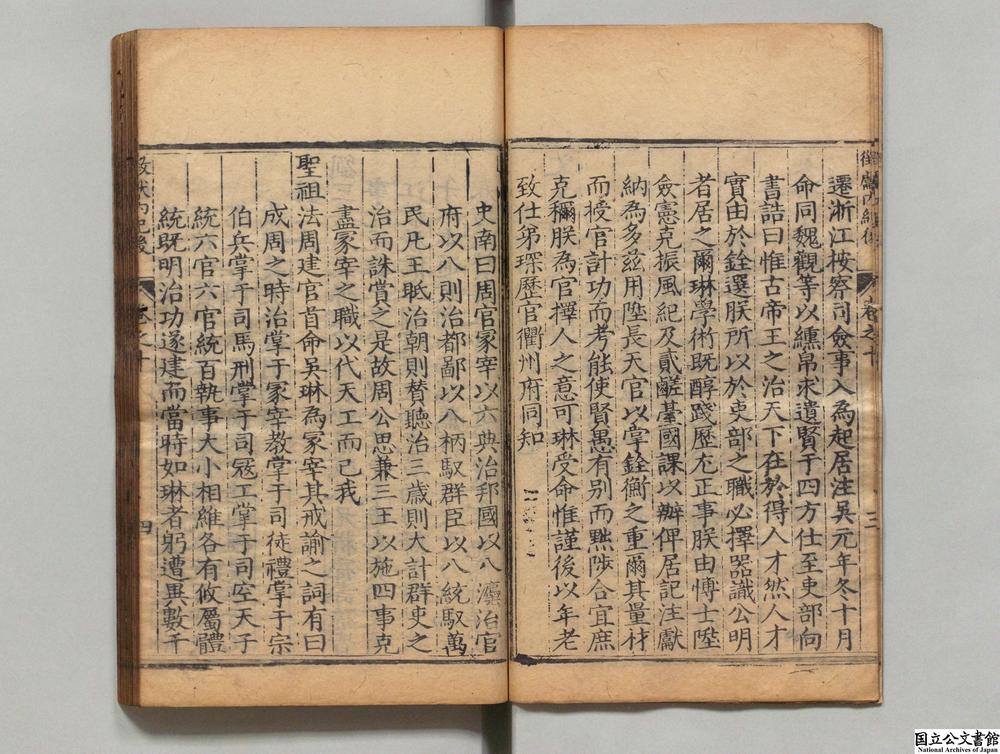 遷浙江按察司僉事入為起居注吳元年冬十月
命同魏觀等以纁帛求遺賢于四方仕至吏部向
書誥曰惟古帝王之治天下在於得人才然人才
實由於銓選朕所以於吏部之職必擇器識公明
者居之爾琳學術既醇踐歷尤正事朕由博士陞
僉憲克振風紀及貳鹺臺國課以辦俾居記注獻
納為多茲用陞長天官以掌銓衡之重爾其量材
而授官計功而考能使賢愚有别而黜陟合宜庶
克稱朕為官擇人之意可琳受命惟謹後以年老
致仕弟琛歷官衢州府同知
卷之十
三
史南曰周官冢宰以六典治邦國以八灋治官
府以八則治都鄙以八柄馭群臣以八統馭萬
民凡王眂治朝則贊聽治三歲則大計群吏之
治而誅賞之是故周公思兼三王以施四事克
盡冢宰之職以代天工而已我
聖祖法周建官首命吳琳為冢宰其戒諭之詞有曰
成周之時治掌于冢宰教掌于司徒禮掌于宗
伯兵掌于司馬刑掌于司冦工掌于司空天子
統六官六官統百執事大小相維各有攸屬體
統既明治功遂建而當時如琳者躬遭異數千
卷之十
四
国立公文書館
National Archives of Japan